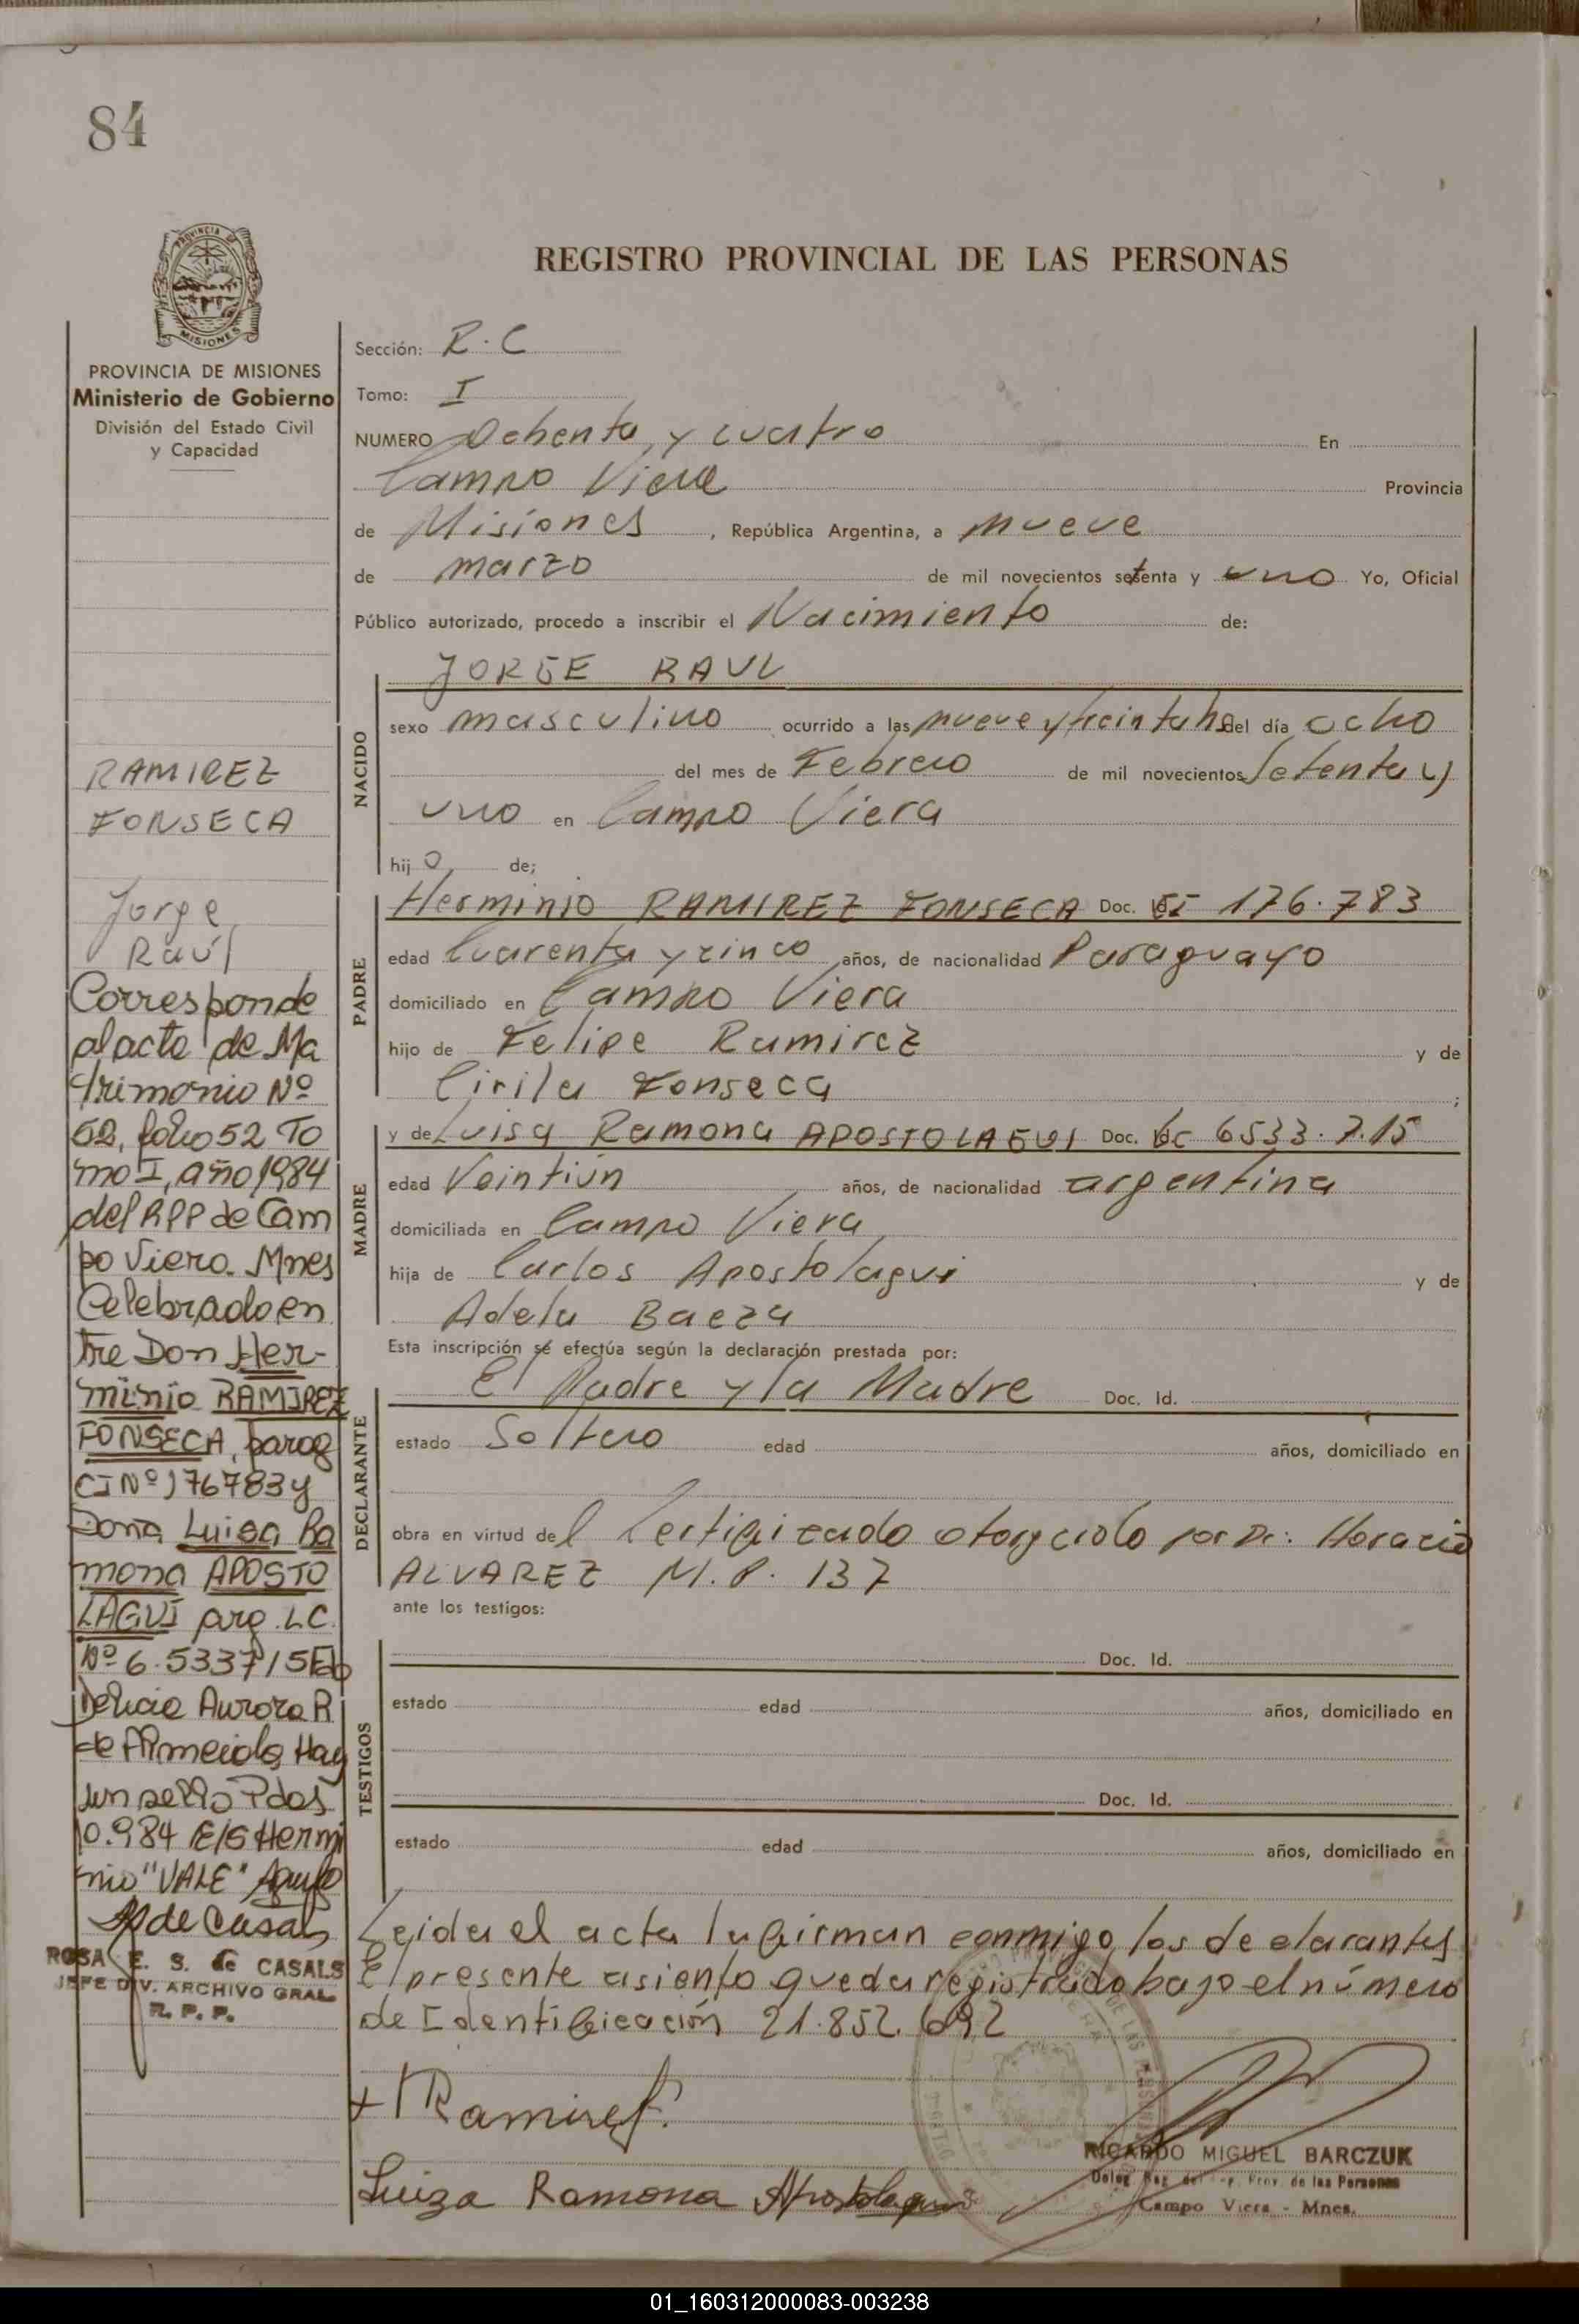 84
PROVINCIA DE
MISIONES
REGISTRO PROVINCIAL DE LAS PERSONAS
PROVINCIA DE MISIONES
Ministerio de Gobierno
División del Estado Civil
y Capacidad
RAMIREZ
FONSECA
Jorge
Raúl
Corresponde
al acta de Ma
trimonio Nº
52, folio 52 To
mo I, año 1984
del RPP de Cam
po Viera. Mnes
Celebrado en
tre Don Her-
minio RAMIREZ
FONSECA, parag
CI Nº 176783 y
Doña Luisa Ra
mona APOSTO
LAGUI arg. LC.
Nº 6.533715 Fdo
Delicia Aurora R
de Almeida Hay
un sello Pdas
10.984 E/S Hermi
nio "VALE"
de Casals
ROSA E. S. de CASALS
JEFE DIV. ARCHIVO GRAL
R. P. P.
Sección: R.C
Tomo: I
NUMERO Ochenta y cuatro En
Campo Viera Provincia
de Misiones, República Argentina, a nueve
de marzo de mil novecientos setenta y uno Yo, Oficial
Público autorizado, procedo a inscribir el Nacimiento de:
NACIDO
JORGE RAUL
sexo masculino ocurrido a las nueve y treinta hs del día ocho
del mes de Febrero de mil novecientos setenta y
uno en Campo Viera
hijo de;
PADRE
Herminio RAMIREZ FONSECA Doc. CI 176.783
edad Cuarenta y cinco años, de nacionalidad Paraguayo
domiciliado en Campo Viera
hijo de Felipe Ramirez y de
Cirila Fonseca ;
MADRE
y de Luisa Ramona APOSTOLAGUI Doc. LC 6533.7.15
edad Veintiún años, de nacionalidad argentina
domiciliada en Campo Viera
hija de Carlos Apostolagui y de
Adela Baeza
Esta inscripción se efectúa según la declaración prestada por:
DECLARANTE
El Padre y la Madre Doc. Id.
estado Soltero edad años, domiciliado en
obra en virtud del Certificado otorgado por Dr: Horacio
ALVAREZ M.P. 137
ante los testigos:
TESTIGOS
Doc. Id.
estado edad años, domiciliado en
Doc. Id.
estado edad años, domiciliado en
Leida el acta la firman conmigo los declarantes
El presente asiento queda registrado bajo el número
de Identificación 21.852.692
+ Ramirez F.
Luiza Ramona Apostolagui
RICARDO MIGUEL BARCZUK
Prov. de las Personas
Campo Viera - Mnes.
01_160312000083-003238